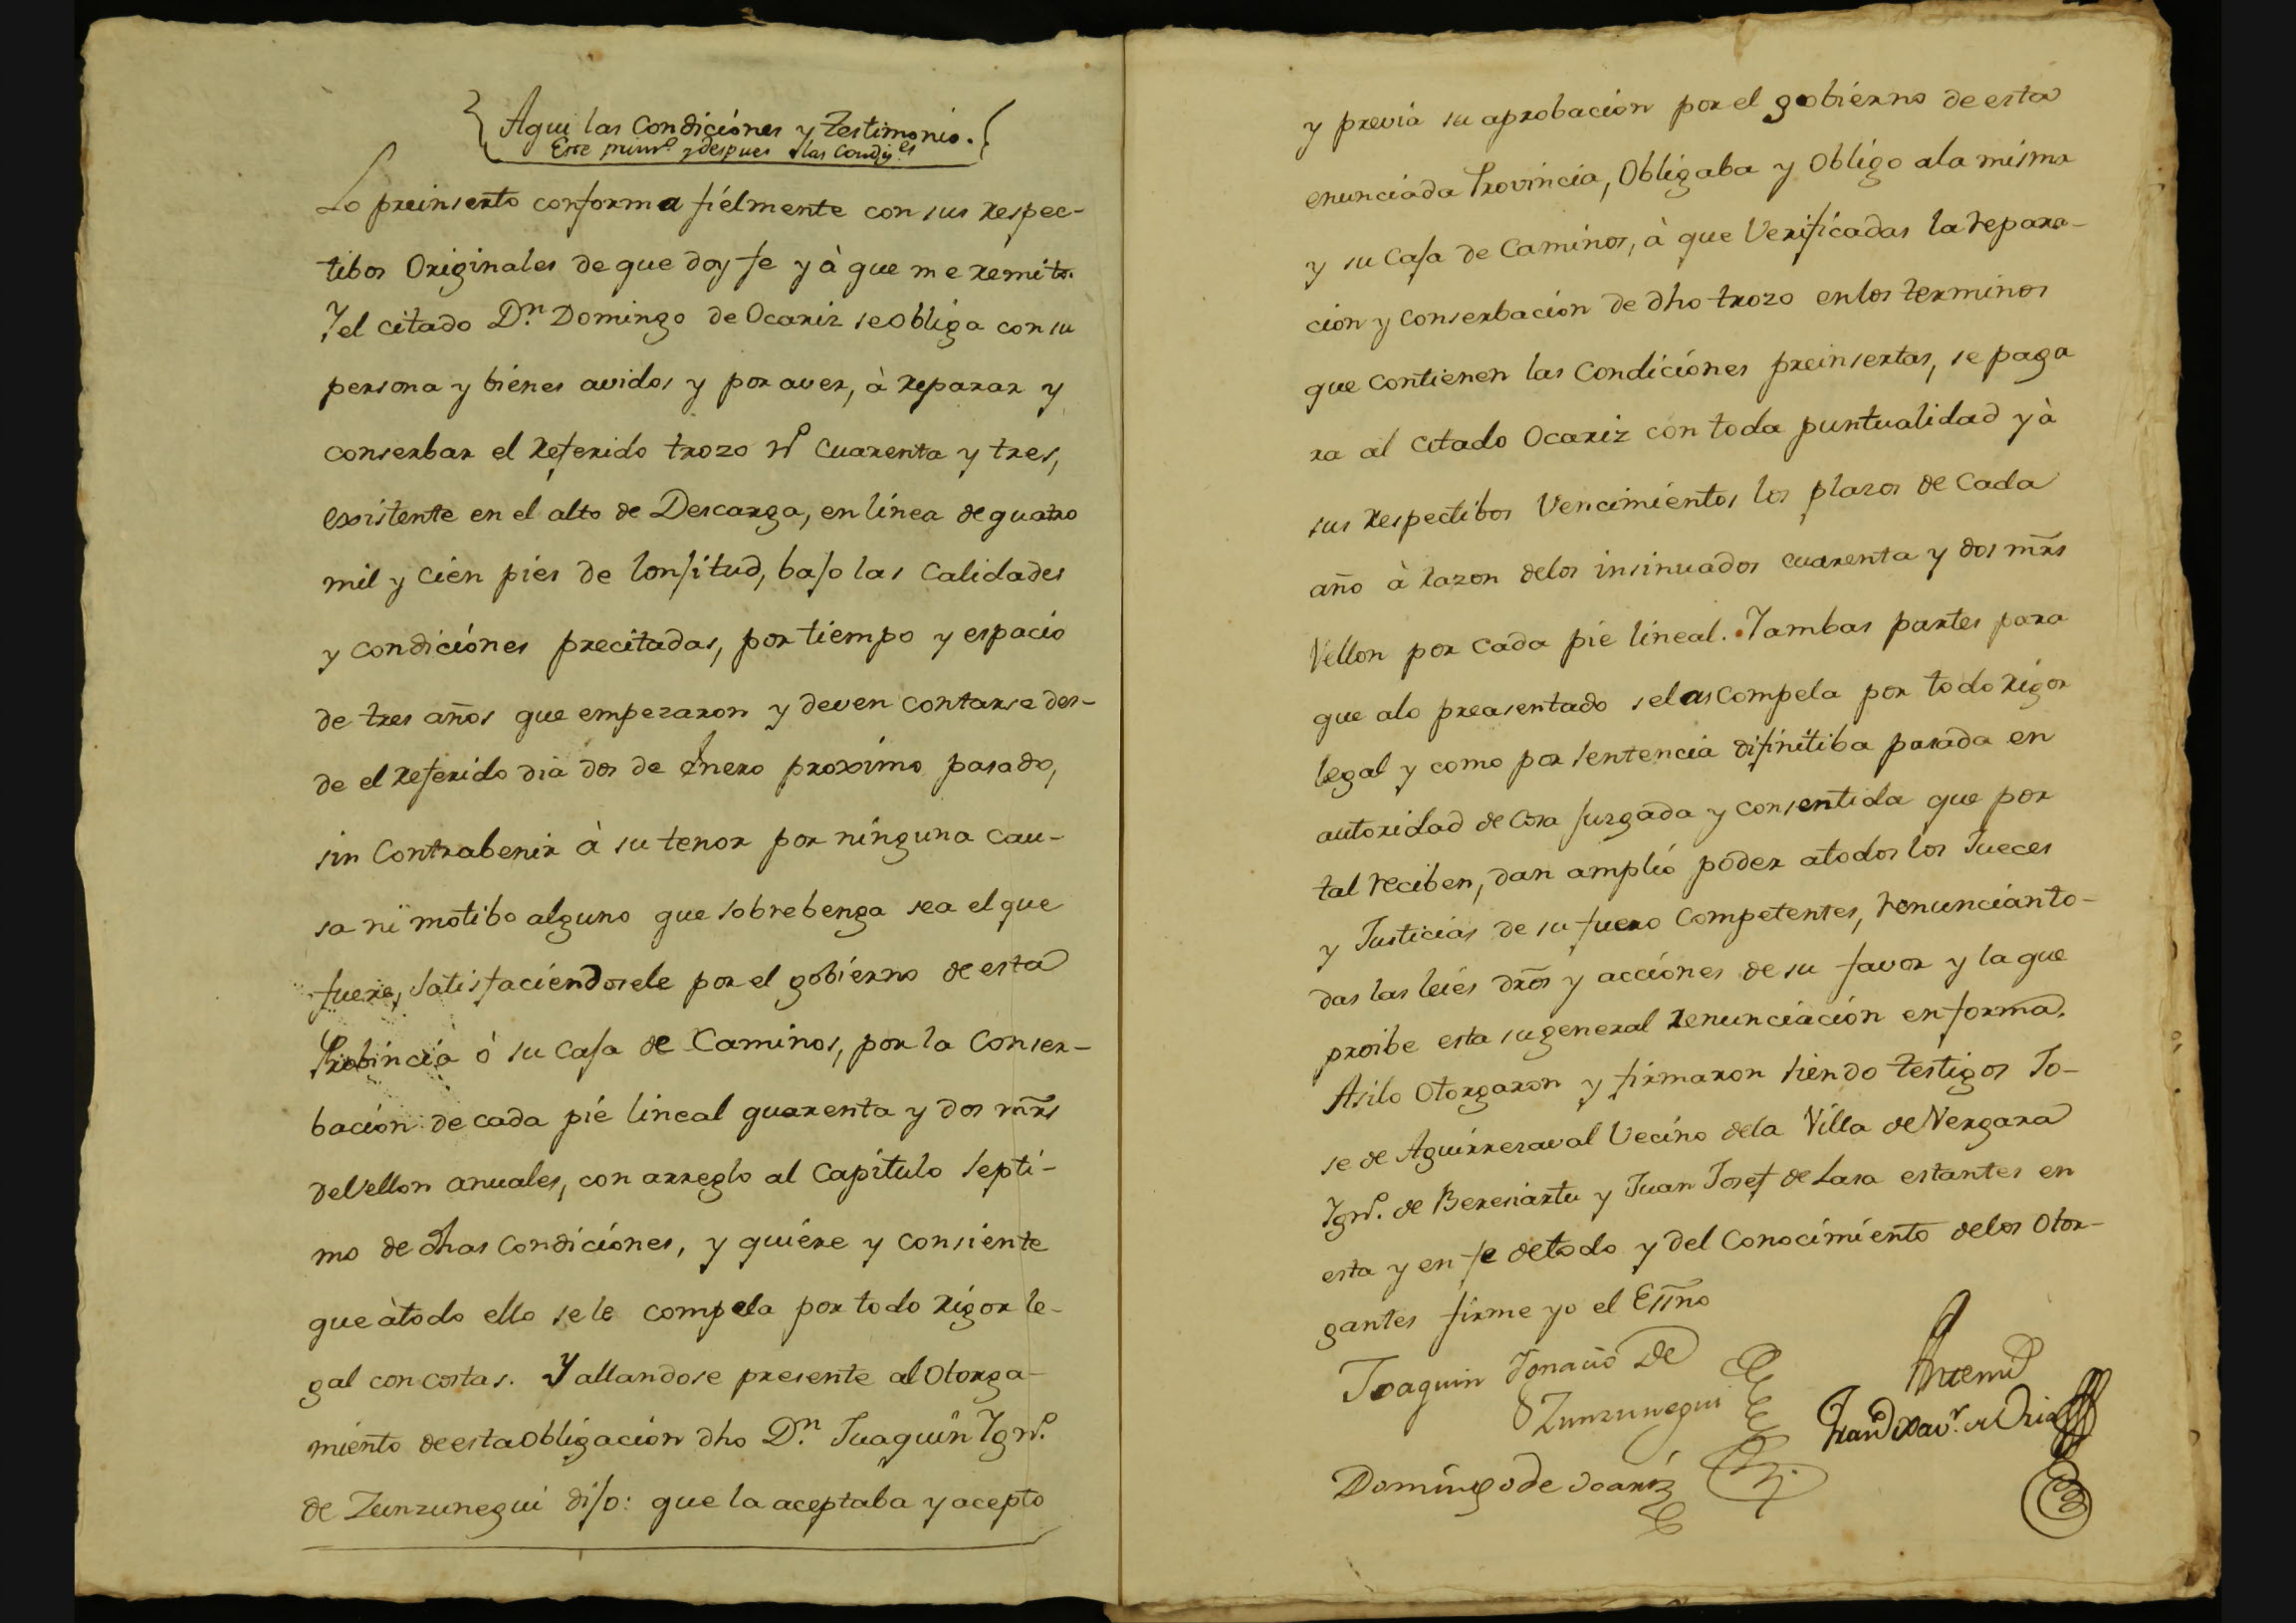 Aqui las Condiciónes y Testimonio.
Este primº y despues las Condiz.es
Lo preinserto conforma fiélmente con sus respec-
tibos Originales de que doy fe y à que me remito.
Y el citado D.n Domingo de Ocariz se obliga con su
persona y biénes avidos y por aver, à reparar y
conserbar el referido trozo nº Cuarenta y tres,
existente en el alto de Descarga, en línea de quatro
mil y Cien pies de lonjitud, bajo las Calidades
y condiciónes precitadas, por tiempo y espacio
de tres años que empezaron y deven contarse des-
de el referido dia dos de Enero proximo pasado,
sin Contrabenir à su tenor por ninguna cau-
sa ni motibo alguno que sobrebenga sea el que
fuere, satisfaciéndosele por el gobiérno de esta
Probincia ò su Caja de Caminos, por la Conser-
bación de cada pié lineal quarenta y dos mr̃s
de Vellon anuales, con arreglo al Capítulo septi-
mo de dhas Condiciónes, y quiére y consiente
que à todo ello se le compela por todo rigor le-
gal con costas. Y allandose presente al Otorga-
miento de esta obligación dho D.n Juaquin Ygnº.
de Zunzunegui dijo: que la aceptaba y acepto
y previa su aprobación por el gobiérno de esta
enunciada Provincia, Obligaba y Obligo a la misma
y su Caja de Caminos, à que Verificadas la repara-
cion y conserbación de dho trozo en los terminos
que contienen las Condiciónes preinsertas, se paga
ra al Citado Ocariz con toda puntualidad y à
sus respectibos Vencimientos los plazos de Cada
año à razon de los insinuados cuarenta y dos mr̃s
Vellon por cada pie lineal. Y ambas partes para
que a lo preasentado se las compela por todo rigor
legal y como por sentencia difinitiba pasada en
autoridad de Cosa juzgada y consentida que por
tal reciben, dan amplió poder a todos los Jueces
y Justicias de su fuero Competentes, renuncian to-
das las leiés dr̃os y acciónes de su favor y la que
proibe esta su general renunciación en forma.
Asi lo Otorgaron y firmaron siendo testigos Jo-
se de Aguirresaval Vecino de la Villa de Vergara
Ygnº. de Beresiartu y Juan Josef de Lasa estantes en
esta y en fe de todo y del Conocimiento de los Otor-
gantes firme yo el Essño
Joaquin Ygnacio De
Zunzunegui
Antemi
Domingo de Ocariz